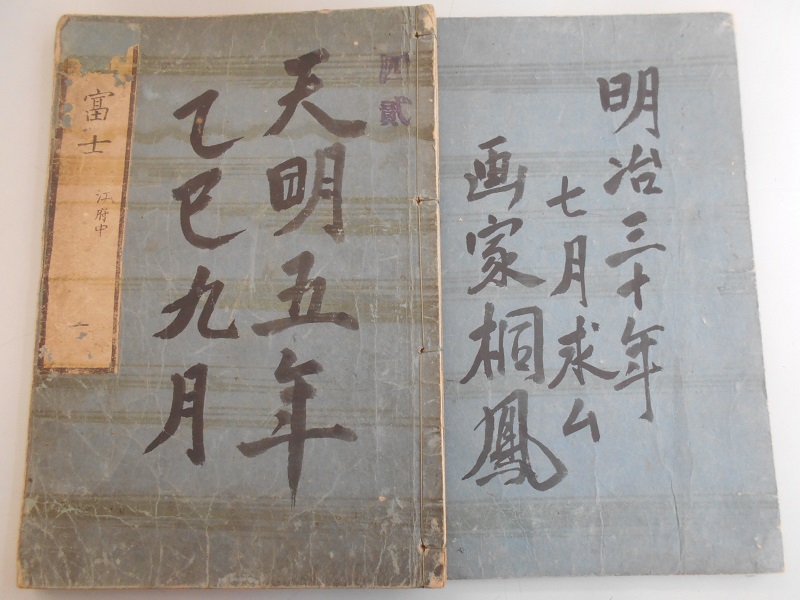 天明五年
乙巳九月
富士
江府中
一
明治三十年
七月求ム
画家桐鳳